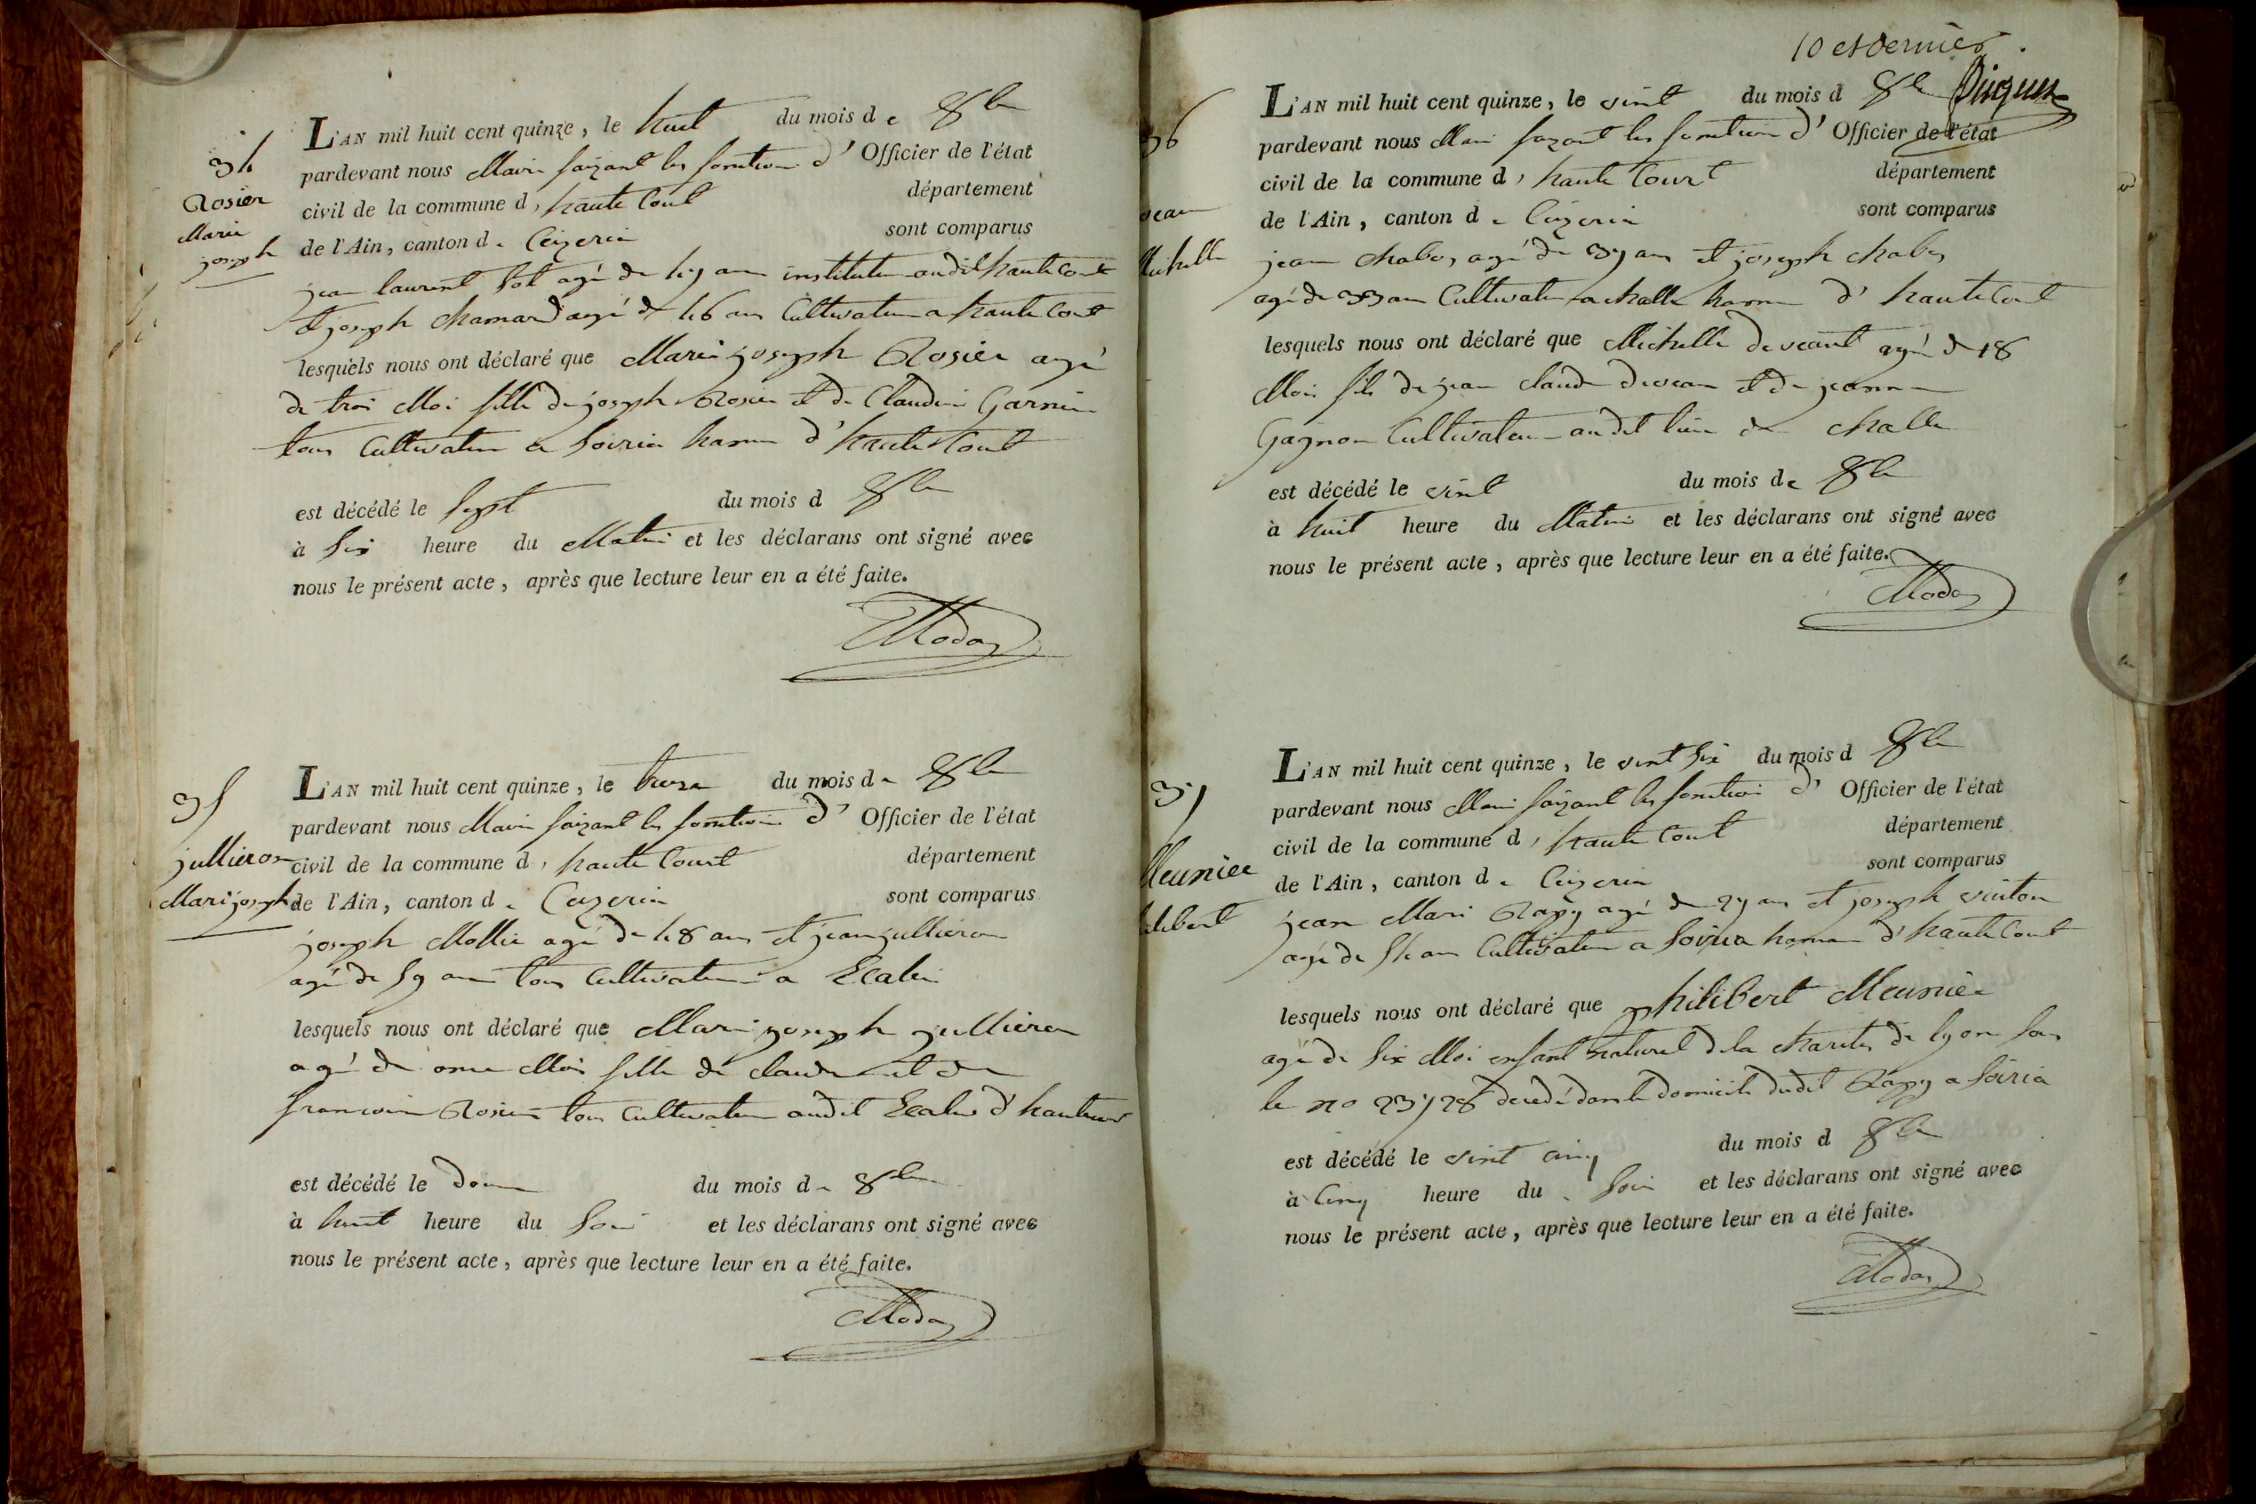 34
Rosier
Marie
joseph
L'AN mil huit cent quinze, le huit du mois de 8bre
pardevant nous Maire faizant les fonction d'Officier de l'état
civil de la commune d, haute Court département
de l'Ain, canton de Ceizeria sont comparus
jean laurent Sot agé de 47 ans instituteur audit haute Court
et joseph chamard agé de 46 ans Cultivateur a haute Court
lesquels nous ont déclaré que Marie joseph Rosier agé
de trois Moi fille de joseph Rosier et de Claudine Garnier
tous Cultivateur a Soiria hameau d'haute Court
est décédé le Sept du mois d 8bre
à Six heure du Matin et les déclarans ont signé avec
nous le présent acte, après que lecture leur en a été faite.
Moday
35
jullieron
Mari joseph
L'AN mil huit cent quinze, le treize du mois de 8bre
pardevant nous Maire faizant les fonction d'Officier de l'état
civil de la commune d, haute Court département
de l'Ain, canton de Ceizeria sont comparus
joseph Mollie agé de 48 ans et jean jullieron
agé de 59 ans tous cultivateur a
lesquels nous ont déclaré que Mari joseph jullieron
agé de onze Mois fille de claude et de
francoise Rosier tous Cultivateur audit d'hautecourt
est décédé le douze du mois de 8bre
à huit heure du Soir et les déclarans ont signé avec
nous le présent acte, après que lecture leur en a été faite.
Moday
10 et dernier.
36
veau
Michelle
L'AN mil huit cent quinze, le vint du mois d 8bre
pardevant nous Maire fazant les fonction d'Officier de l'état
civil de la commune d, haute Court département
de l'Ain, canton de Ceizeria sont comparus
jean chaboy agé de 37 ans et joseph chaboy
agé de 33 ans Cultivateur a challe hameau d'haute Court
lesquels nous ont déclaré que Michelle deveant agé de 18
Mois fils de jean claude deveau et de jeanne
Gagnon Cultivateur audit lieu de challe
est décédé le vint du mois de 8bre
à huit heure du Matin et les déclarans ont signé avec
nous le présent acte, après que lecture leur en a été faite.
Moday
37
Meunier
libert
L'AN mil huit cent quinze, le vint Six du mois d 8bre
pardevant nous Maire faizant les fonction d'Officier de l'état
civil de la commune d, haute Court département
de l'Ain, canton de Ceizeria sont comparus
jean Marie Rapy agé de 27 ans et joseph vinton
agé de 54 ans Cultivateur a Soiria hameau d'haute Court
lesquels nous ont déclaré que philibert Meunier
agé de Six Moi enfant naturel de la charité de lyon sous
le no 23728 decedé dans le domicile dudit Rapy a Soiria
est décédé le vint cinq du mois d 8bre
à Cinq heure du Soir et les déclarans ont signé avec
nous le présent acte, après que lecture leur en a été faite.
Moday